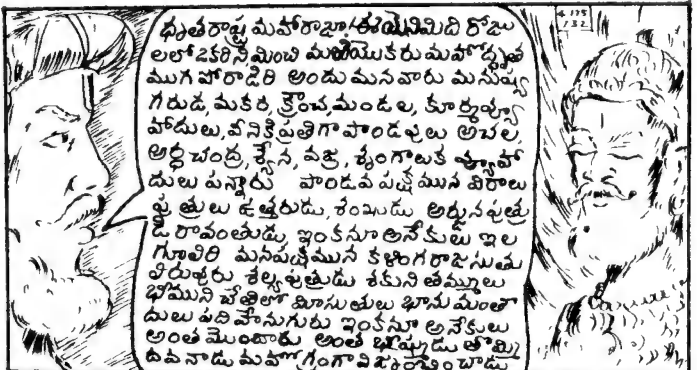 4 175
132
ధృతరాష్ట్ర మహారాజా! ఈ యెనిమిది రోజు
లలో ఒకరిని మించి మరియొకరు మహోధృత
ముగ పోరాడిరి అందు మనవారు మనుష్య
గరుడ, మకర, క్రౌంచ, మండల, కూర్మవ్యూ
హాదులు, వీనికి ప్రతిగా పాండవులు అచల
అర్ధచంద్ర, శ్యేన, వజ్ర, శృంగాటక వ్యూహా
దులు పన్నారు పాండవ పక్షమున విరాటు
పుత్రులు ఉత్తరుడు, శంఖుడు అర్జునపుత్రు
డిరావంతుడు, ఇంకనూ అనేకులు ఇల
గూలిరి మనపక్షమున కళింగరాజసుతు
లిరువురు శల్యపుత్రుడు శకుని తమ్ములు
భీముని చేతిలో మీసుతులు భానుమంతా
దులు పదిహేనుగురు ఇంకనూ అనేకులు
అంతమొందారు అంత భీష్ముడు తొమ్మి
దవనాడు మహోగ్రంగా విజృంభించాడు